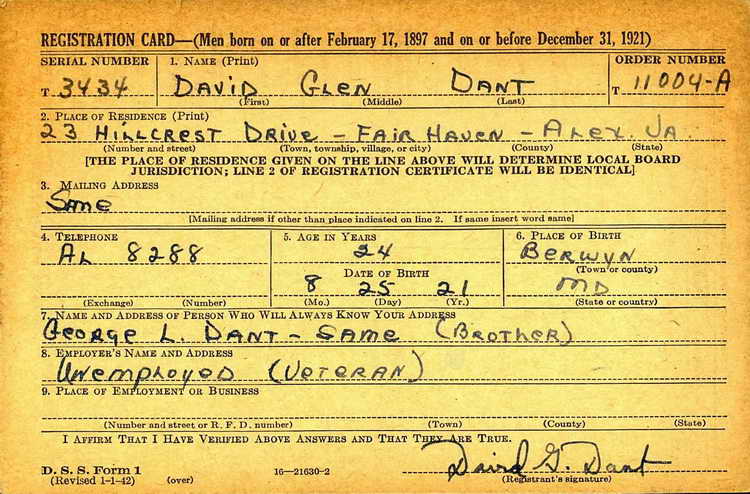 REGISTRATION CARD—(Men born on or after February 17, 1897 and on or before December 31, 1921)
SERIAL NUMBER 1. NAME (Print) ORDER NUMBER
T 3434 DAVID GLEN DANT T 11004-A
(First) (Middle) (Last)
2. PLACE OF RESIDENCE (Print)
23 HILLCREST DRIVE - FAIR HAVEN - ALEX. VA.
(Number and street) (Town, township, village, or city) (County) (State)
[THE PLACE OF RESIDENCE GIVEN ON THE LINE ABOVE WILL DETERMINE LOCAL BOARD
JURISDICTION; LINE 2 OF REGISTRATION CERTIFICATE WILL BE IDENTICAL]
3. MAILING ADDRESS
SAME
[Mailing address if other than place indicated on line 2. If same insert word same]
4. TELEPHONE 5. AGE IN YEARS 6. PLACE OF BIRTH
AL 8288 24 BERWYN
(Town or county)
DATE OF BIRTH
8 25 21 MD
(Exchange) (Number) (Mo.) (Day) (Yr.) (State or country)
7. NAME AND ADDRESS OF PERSON WHO WILL ALWAYS KNOW YOUR ADDRESS
GEORGE L. DANT - SAME (BROTHER)
8. EMPLOYER'S NAME AND ADDRESS
UNEMPLOYED (VETERAN)
9. PLACE OF EMPLOYMENT OR BUSINESS
(Number and street or R. F. D. number) (Town) (County) (State)
I AFFIRM THAT I HAVE VERIFIED ABOVE ANSWERS AND THAT THEY ARE TRUE.
D. S. S. Form 1 David G. Dant
(Revised 1-1-42) (over) 16—21630-2 (Registrant's signature)